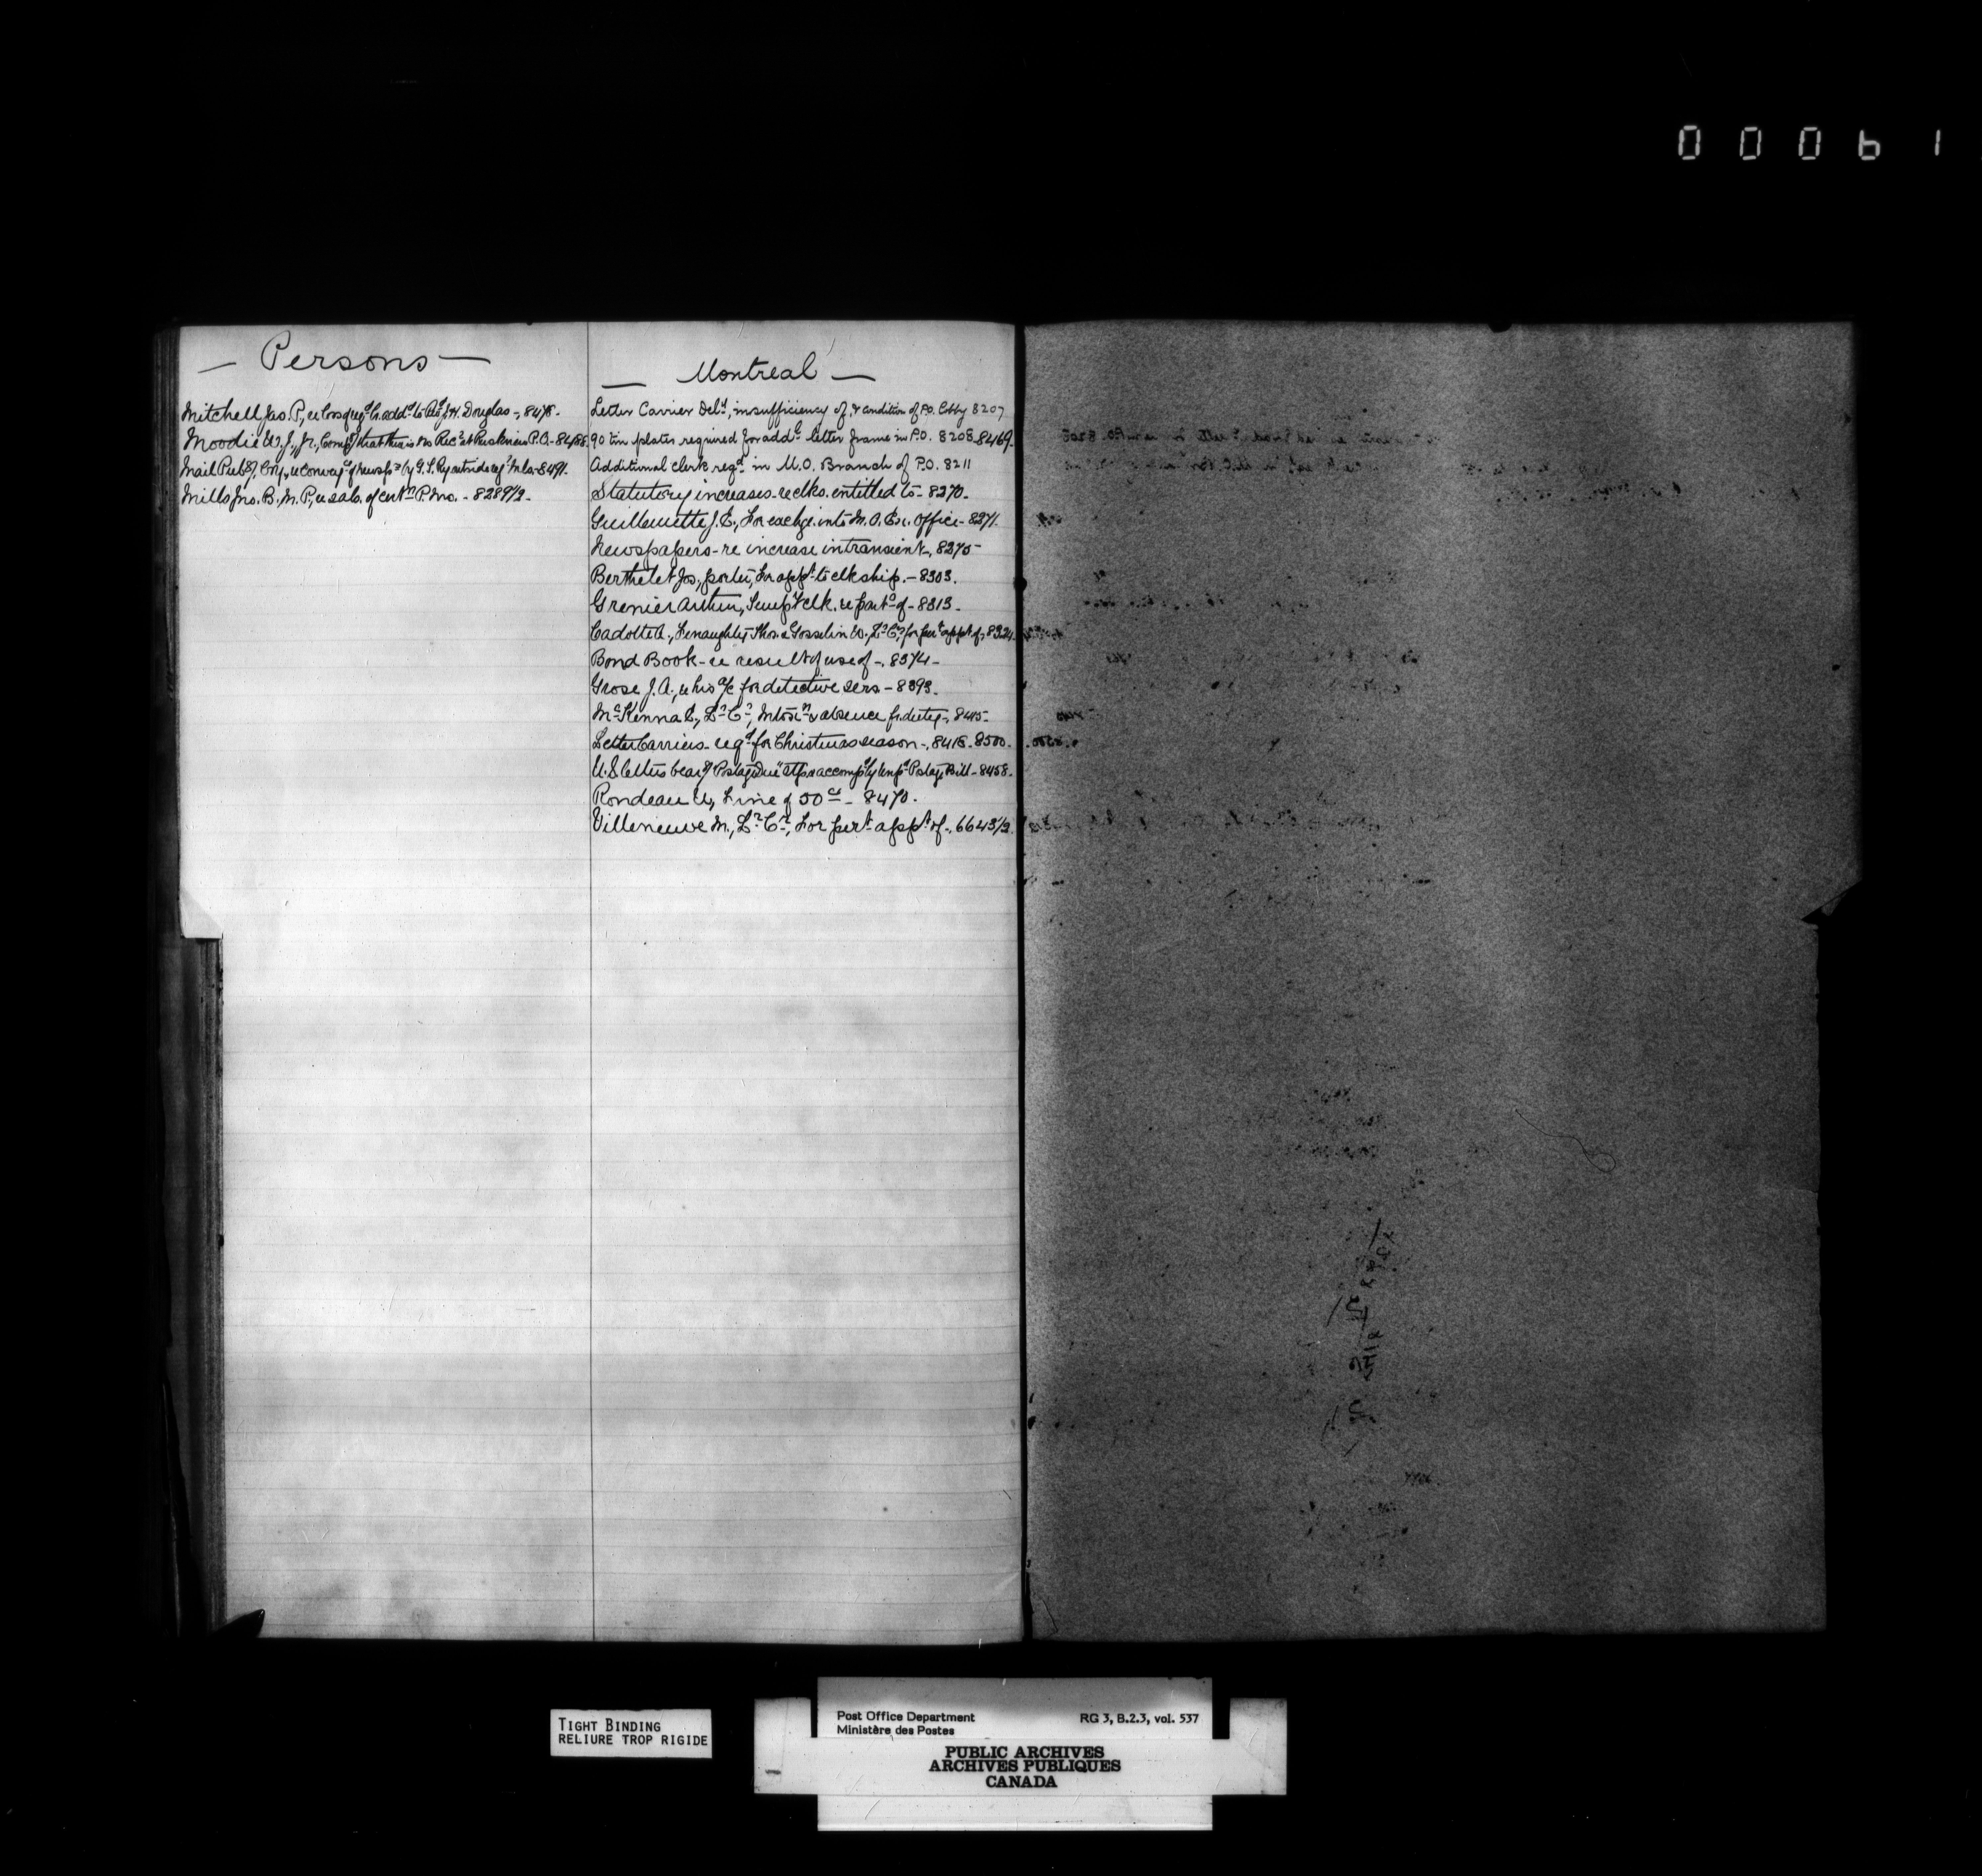 00061
— Persons —
Mitchell Jas. P., re Corsq regd Lr. addd to Revd J. H. Douglas -, 8478.
Moodie W. J., Jr., Compg that there is no Recr at P.O. - 8488.
Mail Pubg Coy, re conveyce of newsps by G. T. Ry outside regr mls - 8491.
Mills Jno. B., M.P., re sals. of certn P. Mrs. - 8289 1/2 -
— Montreal —
Letter Carrier Dely, insufficiency of, & condition of P.O. Lobby 8207
90 tin plates required for addl letter frame in P.O. 8208. 8469.
Additional clerk reqd in M.O. Branch of P.O. 8211
Statutory increases - re clks. entitled to - 8270 -
Guillemette J. E., For exchge. into M. O. Ex. Office - 8271.
Newspapers - re increase in transient -, 8275 -
Berthelet Jos., porter, for appt to clkship. - 8303.
Grenier Arthur, Tempy clk. re part of - 8313 -
Cadotte A., Fenaughty Thos. & Gosselin W., Lr Crs, for pert appt of, 8324.
Bond Book - re result of use of -, 8374 -
Grose J. A., re his a/c for detective sers - 8393.
McKenna C., Lr Cr, Intoxn & absence fr. duty -, 8415 -
Letter Carriers - reqd for Christmas season -, 8418 - 8500.
U.S. letters bearg "Postage Due" stps accompd by Unpd Postage Bill - 8458.
Rondeau A., Fine of 50 cs - 8470.
Villeneuve M., Lr Cr, For pert appt of -, 6643 1/2
TIGHT BINDING
RELIURE TROP RIGIDE
Post Office Department
Ministère des Postes
RG 3, B.2.3, vol. 537
PUBLIC ARCHIVES
ARCHIVES PUBLIQUES
CANADA